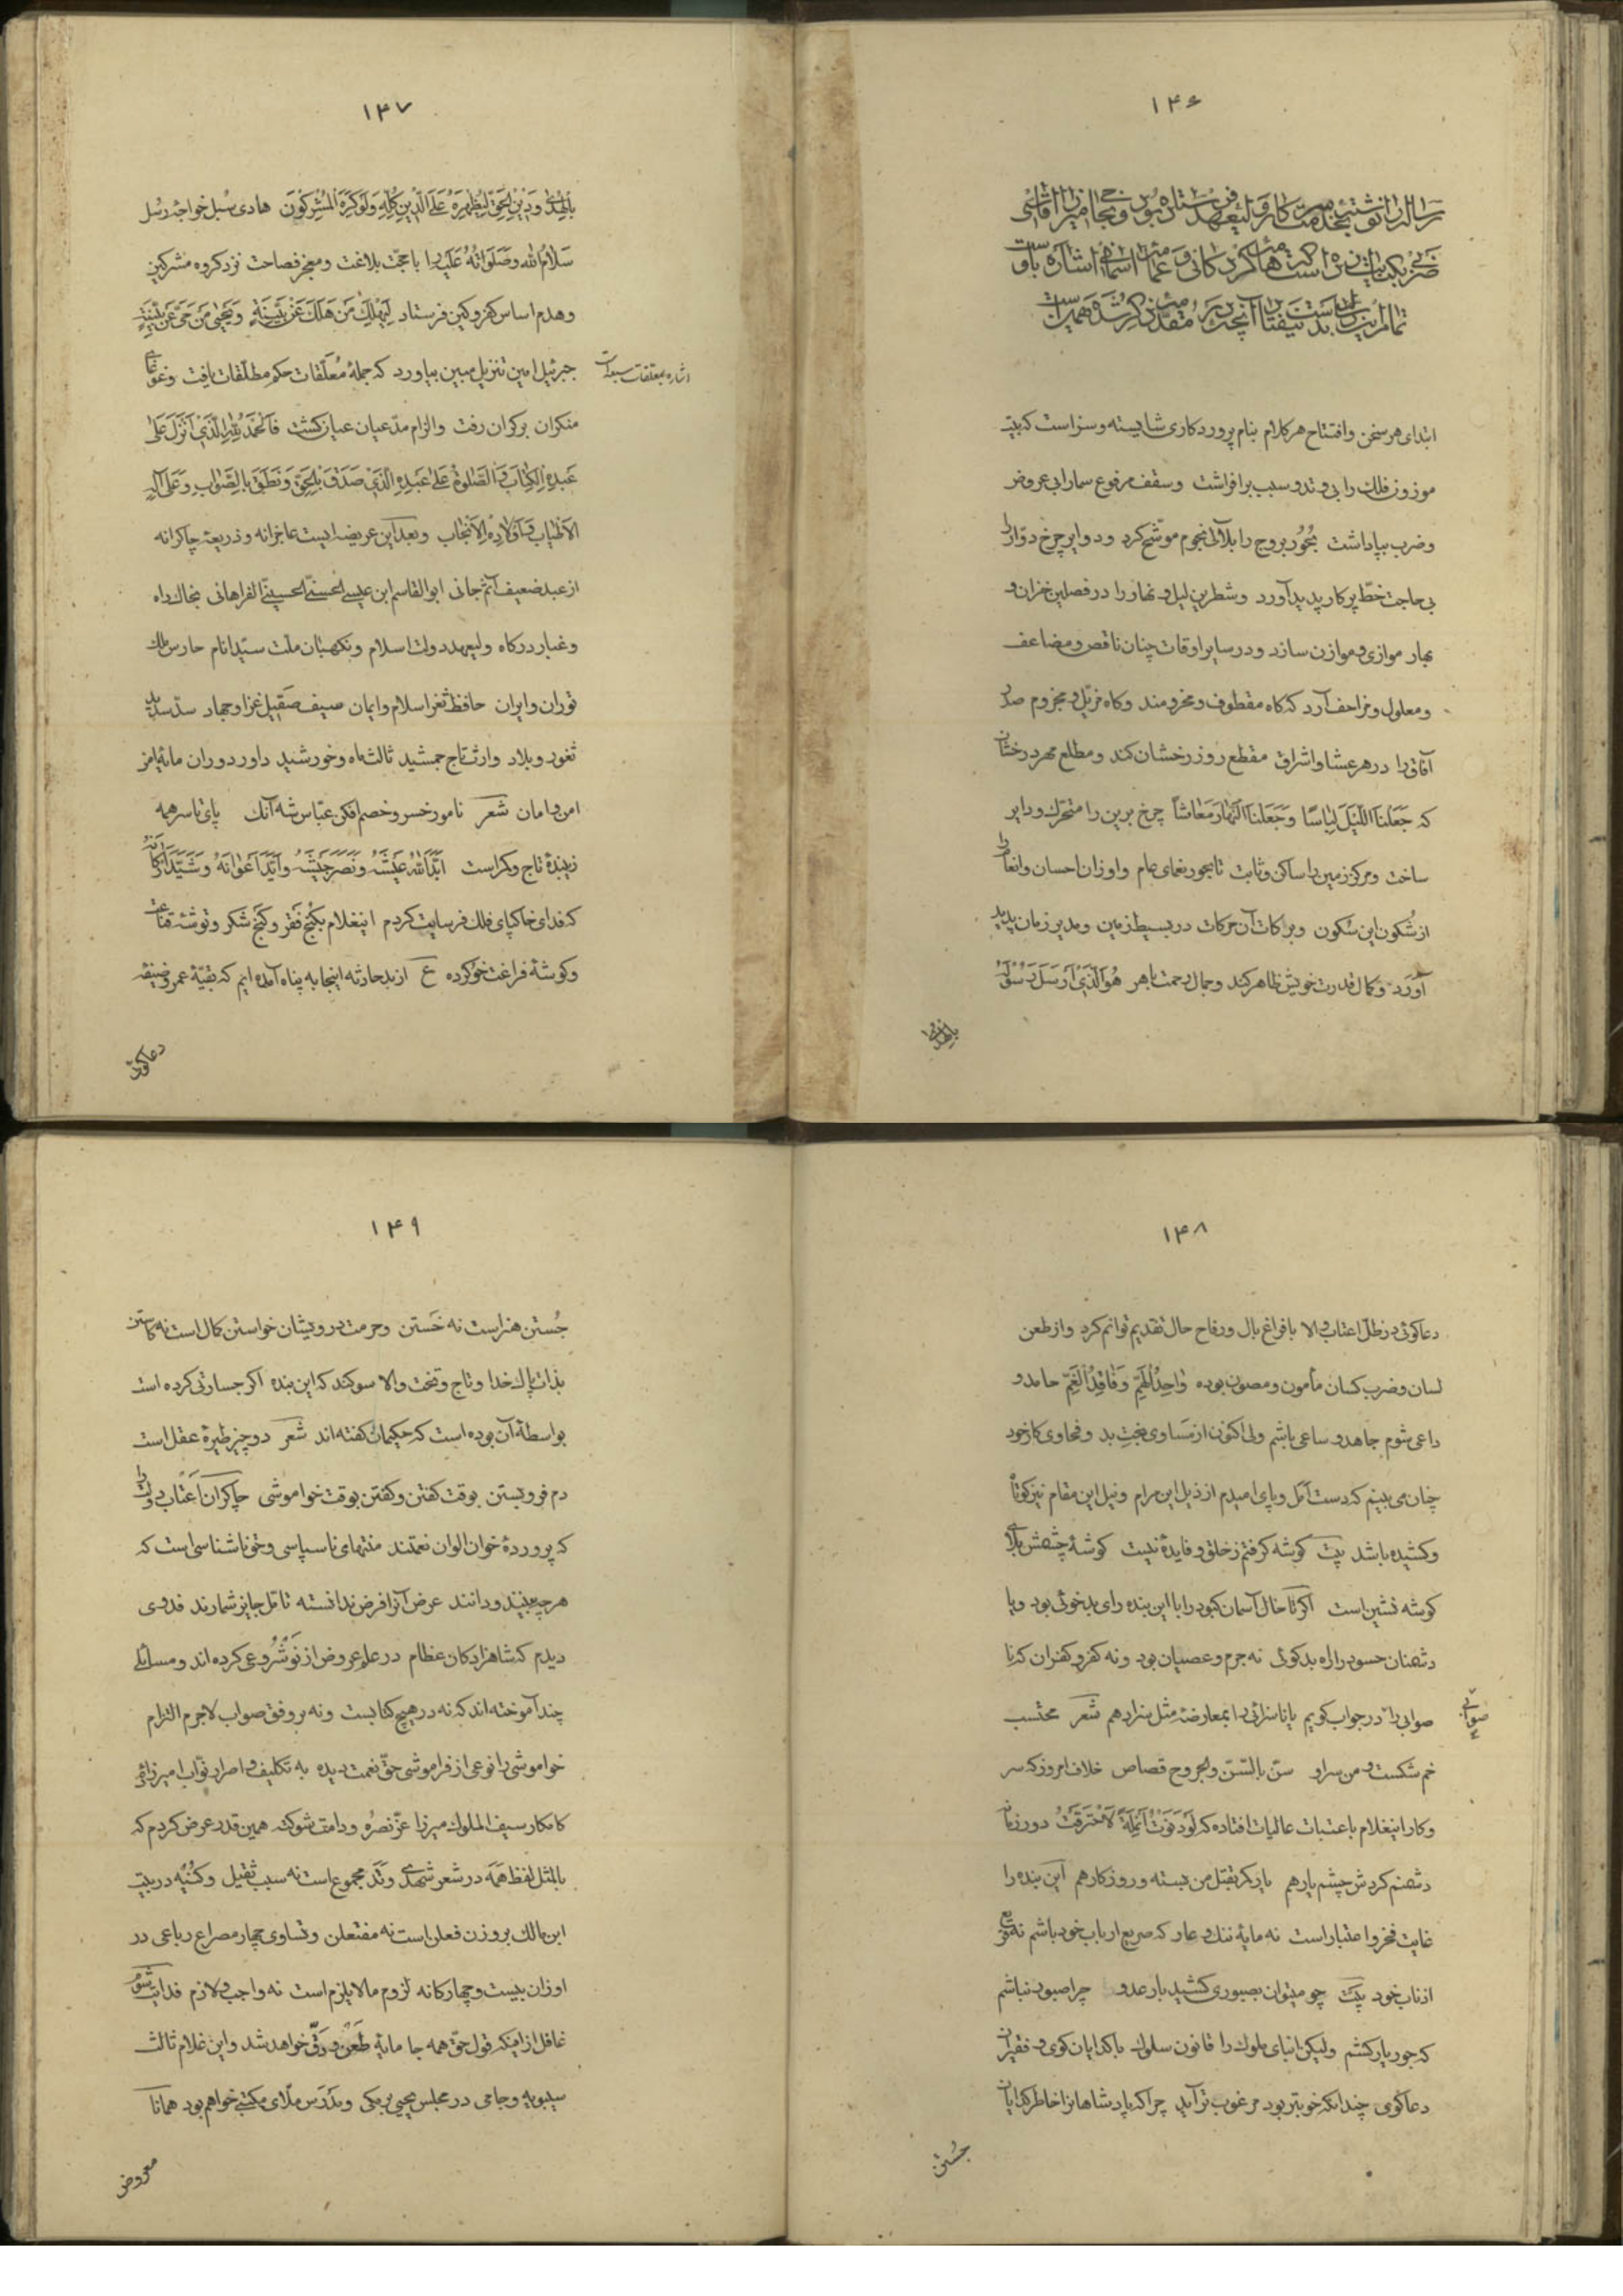 ۱۴۶
رساله را نوشته بخدمت سرکار ولیعهد فرستاده بودن و بجا میرزا آقاسی
ابتدای هر سخن و افتتاح هر کلام بنام پروردکاری شایسته و سزاست که بیت
موزون فلک را بی وتد و سبب برافراشت وسقف مرفوع سما را بی عروض
وضرب بپاداشت بُحُور بروج را بلآلی نجوم موشّح کرد ودوایر چرخ دوّار را
بی حاجت خطّ پرکار پدید آورد وشطرین لیل و نهار را در فصلین خزان و
بهار موازی و موازن سازد ودر سایر اوقات چنان ناقص و مضاعف
ومعلول و مزاحف آرد که کاه مقطوف و مخرومند وکاه مرتّل و مجزوم صدر
آفاق را در هر عشا و اشراق مقطع روز رخشان کند ومطلع مهر درخشان
که جَعَلْنَا اللَّیْلَ لِبَاسًا وَجَعَلْنَا النَّهَارَ مَعَاشاً چرخ برین را متحرک ودایر
ساخت ومرکز زمین را ساکن و ثابت تا بحور نعمای عام واوزان احسان وانعام را
از سُکون این سُکون وبرکات آن حرکات در بسیط زمین ومدیر زمان پدید
آورد وکمال قدرت خویش ظاهر کند وجمال رحمت باهر هُوَ الَّذِی أَرْسَلَ رَسُولَهُ
بِالْهُدٰی
۱۴۷
بِالْهُدٰی وَدِیْنِ الْحَقِّ لِیُظْهِرَهُ عَلَی الدِّیْنِ کُلِّهِ وَلَوْ کَرِهَ الْمُشْرِکُوْنَ هادی سُبل خواجهٔ رسُل
سَلَامُ اللّٰه وَصَلَوَاتُهُ عَلَیْه را با حجّت بلاغت ومعجز فصاحت نزد کروه مشرکین
وهدم اساس کفر و کین فرستاد لِیَهْلِکَ مَنْ هَلَکَ عَنْ بَیِّنَةٍ وَیَحْیٰی مَنْ حَیَّ عَنْ بَیِّنَةٍ
جبرئیل امین تنزیل مبین بیاورد که جملهٔ مُعَلّقات حکم مطلّقات یافت وغوغای
اشاره بمعلقات سبعه است
منکران برکران رفت والزام مدّعیان عیان کشت فَالْحَمْدُ لِلّٰهِ الَّذِی أَنْزَلَ عَلٰی
عَبْدِهِ الْکِتَابَ وَالصَّلٰوةُ عَلٰی عَبْدِهِ الَّذِی صَدَقَ بِالْحَقِّ وَنَطَقَ بِالصَّوٰابِ وَعَلٰی آلِهِ
الْاَطْیٰابِ وَاَوْلٰادِهِ الْاَنْجٰابِ وبعد این عریضه ایست عاجزانه وذریعهٔ چاکرانه
از عبد ضعیف آثم جانی ابوالقاسم ابن عیسی الحسنی الحسینی الفراهانی بخاک راه
وغبار درکاه ولیعهد دولت اسلام ونکهبان ملّت سیّد انام حارس ملک
توران وایران حافظ ثغر اسلام وایمان سیف صَقیل غزا وجهاد سدّ سدید
ثغور وبلاد وارث تاج جمشید ثالث ماه وخورشید داور دوران مایهٔ امن
امن وامان شعر نامور خسرو خصم افکن عبّاس شه آنک پای تا سر همه
زیبندهٔ تاج وکمر است اَبَّدَ اللّٰهُ عَیْشَهُ وَنَصَرَ جَیْشَهُ وَاَیَّدَ اَعْوٰانَهُ وَشَیَّدَ اَرْکٰانَهُ
که فدای خاکپای فلک فرسایت کردم اینغلام بکُنج فقر وکَنج شکر وتوشهٔ قناعت
وکوشهٔ فراغت خو کرده ع از بد حادثه اینجا به پناه آمده ایم که بقیّهٔ عمر وضیفه
دعاکوئی
۱۴۸
دعاکوئی در ظل اعتاب والا با فراغ بال ورفاح حال تقدیم توانم کرد واز طعن
لسان وضرب کسان مأمون ومصون بوده وٰاجِدُ الْهِمَمِ وَفٰاقِدُ الْغِیَمِ حامد و
داعی شوم جاهد وساعی باشم ولی اکنون از مساوی بخت بد وفحاوی کار خود
چنان می بینم که دست آمل وپای امیدم از ذیل این مرام ونیل این مقام نیز کوتاه
وکشیده باشد بیت کوشه کرفتم ز خلق و فایدهٔ نیست کوشهٔ چشمش بلای
کوشه نشین است اکر تا حال آسمان کبود را با این بنده رای بدخوئی بود ویا
دشمنان حسود را راه بدکوئی نه جرم وعصیان بود ونه کفر وکفران که نا
صوابی را در جواب کویم یا ناسزائی را بمعارضهٔ مثل سزا دهم شعر محتسب
صوابی
خم شکست و من سر او سنّ بالسّن والجروح قصاص خلاف امروز که سر
وکار اینغلام با عتبات عالیات افتاده که لَوْ دَنَوْتُ اَنْمِلَةً لَاحْتَرَقَتُ دور زمان
دشمنم کردش چشم یار هم یار کمر بقتل من بسته وروزکار هم این بنده را
غایت فخر واعتبار است نه مایهٔ ننک وعار که صریع ارباب خود باشم نه
از ناب خود بیت چو میتوان بصبوری کشید بار عدو چرا صبور نباشم
که جور یار کشم ولیکن ابنای ملوک را قانون سلوک با کدایان کوی و فقیران
دعاکوی چندانکه خوبتر بود مرغوب تر آید چرا که پادشاهانرا خاطر کدایان
جُستن
۱۴۹
جُستن هنر است نه خَستن وحرمت درویشان خواستن کمال است نه کاستن
بذات پاک خدا وتاج وتخت والا سوکند که این بنده اکر جسارتی کرده است
بواسطهٔ آن بوده است که حکیمان کفته اند شعر دو چیز طیرهٔ عقل است
دم فرو بستن بوقت کفتن وکفتن بوقت خواموشی چاکران اعتاب دولت را
که پروردهٔ خوان الوان نعمتند منتهای ناسپاسی وحق ناشناسی است که
هر چه بینند ودانند عرض آنرا فرض ندانسته تامّل جایز شمارند فدوی
دیدم که شاهزادکان عظام در علم عروض از نَو شُروعی کرده اند ومسائلی
چند آموخته اند که نه در هیچ کتابست ونه بر وفق صواب لاجرم التزام
خواموشی را نوعی از فراموشی حقّ نعمت دیده به تکلیف واصرار نوّاب امیرزادهٔ
کامکار سیف الملوک میرزا عزّ نصرُه ودامت شوکته همین قدر عرض کردم که
بالمثل لفظ هَمَه در شعر شهدی وَتَد مجموع است نه سبب ثقیل وکُنیه در بیت
ابن مالک بر وزن فعلن است نه مفتعلن وتساوی چهار مصراع رباعی در
اوزان بیست وچهارکانه لزوم مالایلزم است نه واجب ولازم فدایت شوم
غافل از اینکه قول حقّ همه جا مایه طَعْن ودَقّ خواهد شد واین غلام ثالث
سیبویه وجامی در مجلس یحیی برمکی ومدرس ملّای مکتبی خواهم بود همانا
معروض